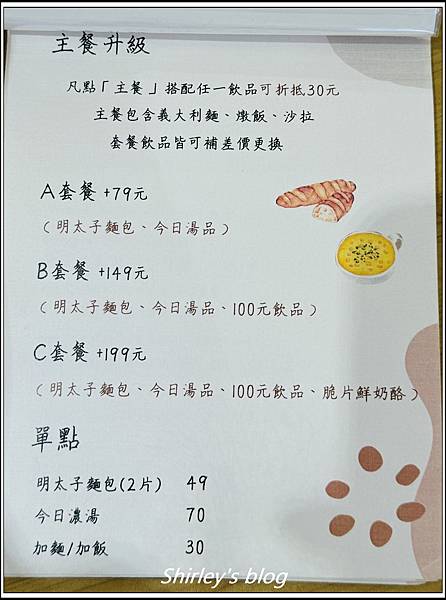 主餐升級
凡點「主餐」搭配任一飲品可折抵30元
主餐包含義大利麵、燉飯、沙拉
套餐飲品皆可補差價更換
A套餐 +79元
（明太子麵包、今日湯品）
B套餐 +149元
（明太子麵包、今日湯品、100元飲品）
C套餐 +199元
（明太子麵包、今日湯品、100元飲品、脆片鮮奶酪）
單點
明太子麵包(2片) 49
今日濃湯 70
加麵/加飯 30
Shirley's blog